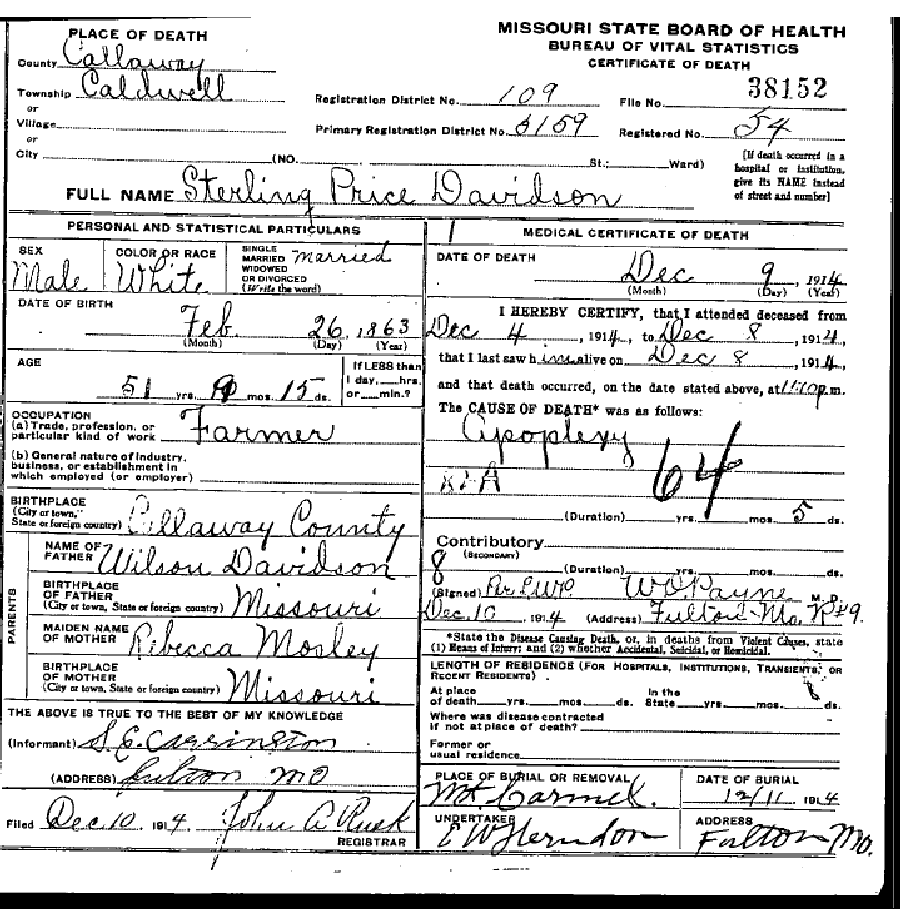 MISSOURI STATE BOARD OF HEALTH
BUREAU OF VITAL STATISTICS
CERTIFICATE OF DEATH
PLACE OF DEATH
County Callaway
Township Caldwell
or
Village
or
City (NO. St.; Ward)
Registration District No. 109 File No. 38152
Primary Registration District No. 6159 Registered No. 54
[If death occurred in a
hospital or institution,
give its NAME instead
of street and number]
FULL NAME Sterling Price Davidson
PERSONAL AND STATISTICAL PARTICULARS
SEX
Male
COLOR OR RACE
White
SINGLE
MARRIED
WIDOWED
OR DIVORCED
(Write the word)
married
DATE OF BIRTH
Feb 26, 1863
(Month) (Day) (Year)
AGE
51 yrs. mos. 15 ds.
If LESS than
1 day, hrs.
or min.?
OCCUPATION
(a) Trade, profession, or
particular kind of work Farmer
(b) General nature of industry,
business, or establishment in
which employed (or employer)
BIRTHPLACE
(City or town,
State or foreign country) Callaway County
PARENTS
NAME OF
FATHER Wilson Davidson
BIRTHPLACE
OF FATHER
(City or town, State or foreign country) Missouri
MAIDEN NAME
OF MOTHER Rebecca Mosley
BIRTHPLACE
OF MOTHER
(City or town, State or foreign country) Missouri
THE ABOVE IS TRUE TO THE BEST OF MY KNOWLEDGE
(Informant) S. E. Carrington
(ADDRESS) Fulton Mo
Filed Dec. 10 1914. John A Rusk
REGISTRAR
1
MEDICAL CERTIFICATE OF DEATH
DATE OF DEATH
Dec 9, 1914
(Month) (Day) (Year)
I HEREBY CERTIFY, that I attended deceased from
Dec 4, 1914, to Dec 8, 1914,
that I last saw him alive on Dec 8, 1914,
and that death occurred, on the date stated above, at p.m.
The CAUSE OF DEATH* was as follows:
Apoplexy
64
(Duration) yrs. mos. 5 ds.
Contributory
(SECONDARY)
8
(Duration) yrs. mos. ds.
(Signed) Per W O Payne M. D.
Dec. 10, 1914 (Address) Fulton Mo. R#9.
*State the Disease Causing Death, or, in deaths from Violent Causes, state
(1) Means of Injury; and (2) whether Accidental, Suicidal, or Homicidal.
LENGTH OF RESIDENCE (FOR HOSPITALS, INSTITUTIONS, TRANSIENTS, OR
RECENT RESIDENTS)
At place
of death yrs. mos. ds.
In the
State yrs. mos. ds.
Where was disease contracted
if not at place of death?
Former or
usual residence
PLACE OF BURIAL OR REMOVAL
Mt Carmel.
DATE OF BURIAL
12/11 1914
UNDERTAKER
E W Herndon
ADDRESS
Fulton Mo.